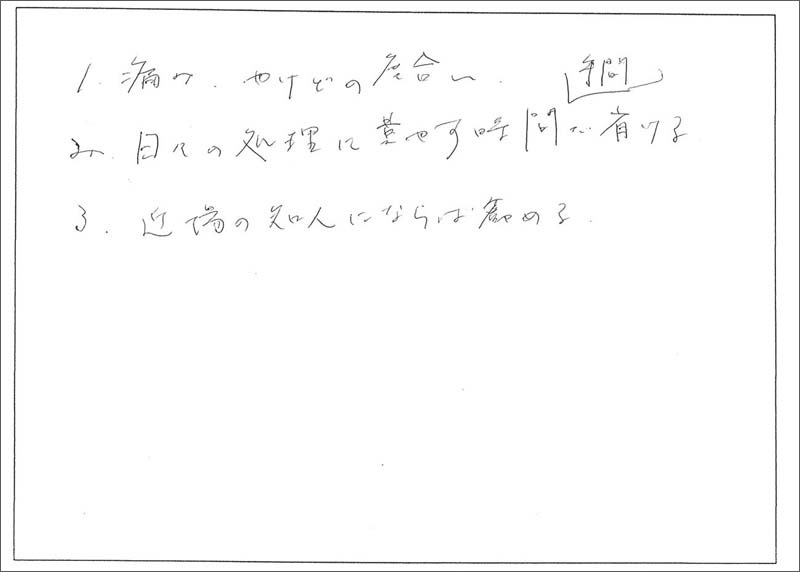 1. 痛み、やけどの度合い.
手間
2. 日々の処理に費やす時間が省ける
3. 近場の知人にならば勧める.